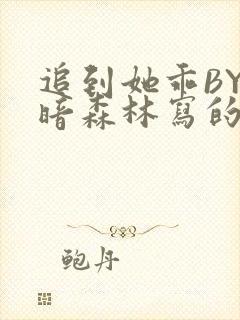 追到她乖BY
暗森林寫的
鲍丹